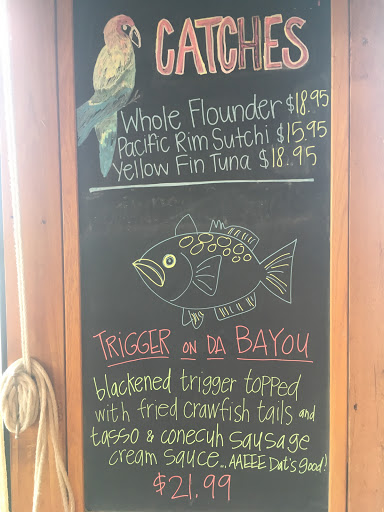 CATCHES
Whole Flounder $18.95
Pacific Rim Sutchi $15.95
Yellow Fin Tuna $18.95
TRIGGER ON DA BAYOU
blackened trigger topped
with fried crawfish tails and
tasso & conecuh sausage
cream sauce... AAEEE Dat's good!
$21.99